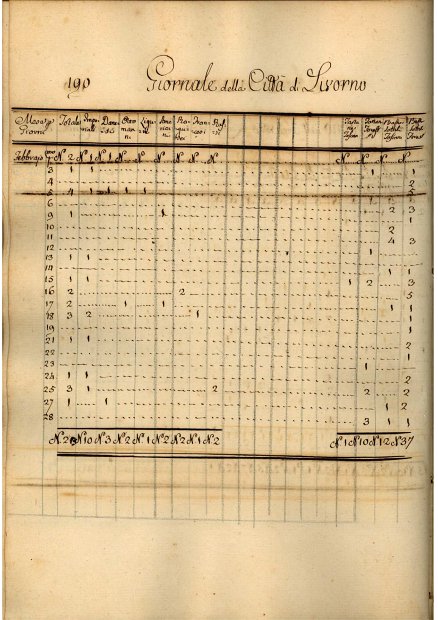 190 Giornale della Città di Livorno
Mese, e Giorni Totale Impe riali Danesi Otto mani Liguri Ame ricani Ra gu sei Fran cesi
Febbraio N. 2 N. 1 N. 1 N. N. N. N. N. N. N. N. N. N.
3 1 1 1 1
4 2
5 4 1 1 1 1 5
6 2 3
9 1 1 1
10 2
11 4 3
12 1
13 1 1 1
14 1 1
15 1 1 1 2 3
16 2 2 5
17 2 1 1 1 1
18 3 2 1 3
19 1
21 1 1 2
22 2
23 1 1
24 1 1 1 1
25 3 1 2 2 2
27 1 1 1 2
28 3 1 1
N. 26 N. 10 N. 3 N. 2 N. 1 N. 2 N. 2 N. 1 N. 2 N. 1 N. 10 N. 12 N. 37